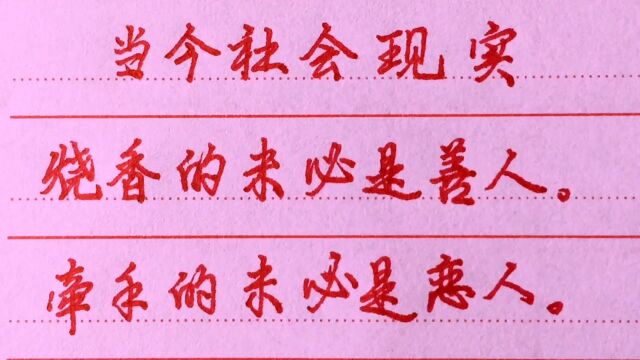 当今社会现实
烧香的未必是善人。
牵手的未必是恋人。